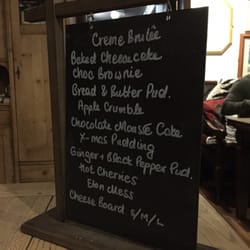 "Creme Brulée"
Baked Cheesecake
Choc Brownie
Bread & Butter Pud.
Apple Crumble
Chocolate Mousse Cake
X-mas Pudding
Ginger + Black Pepper Pud.
Hot Cherries
Eton Mess
Cheese Board S/M/L